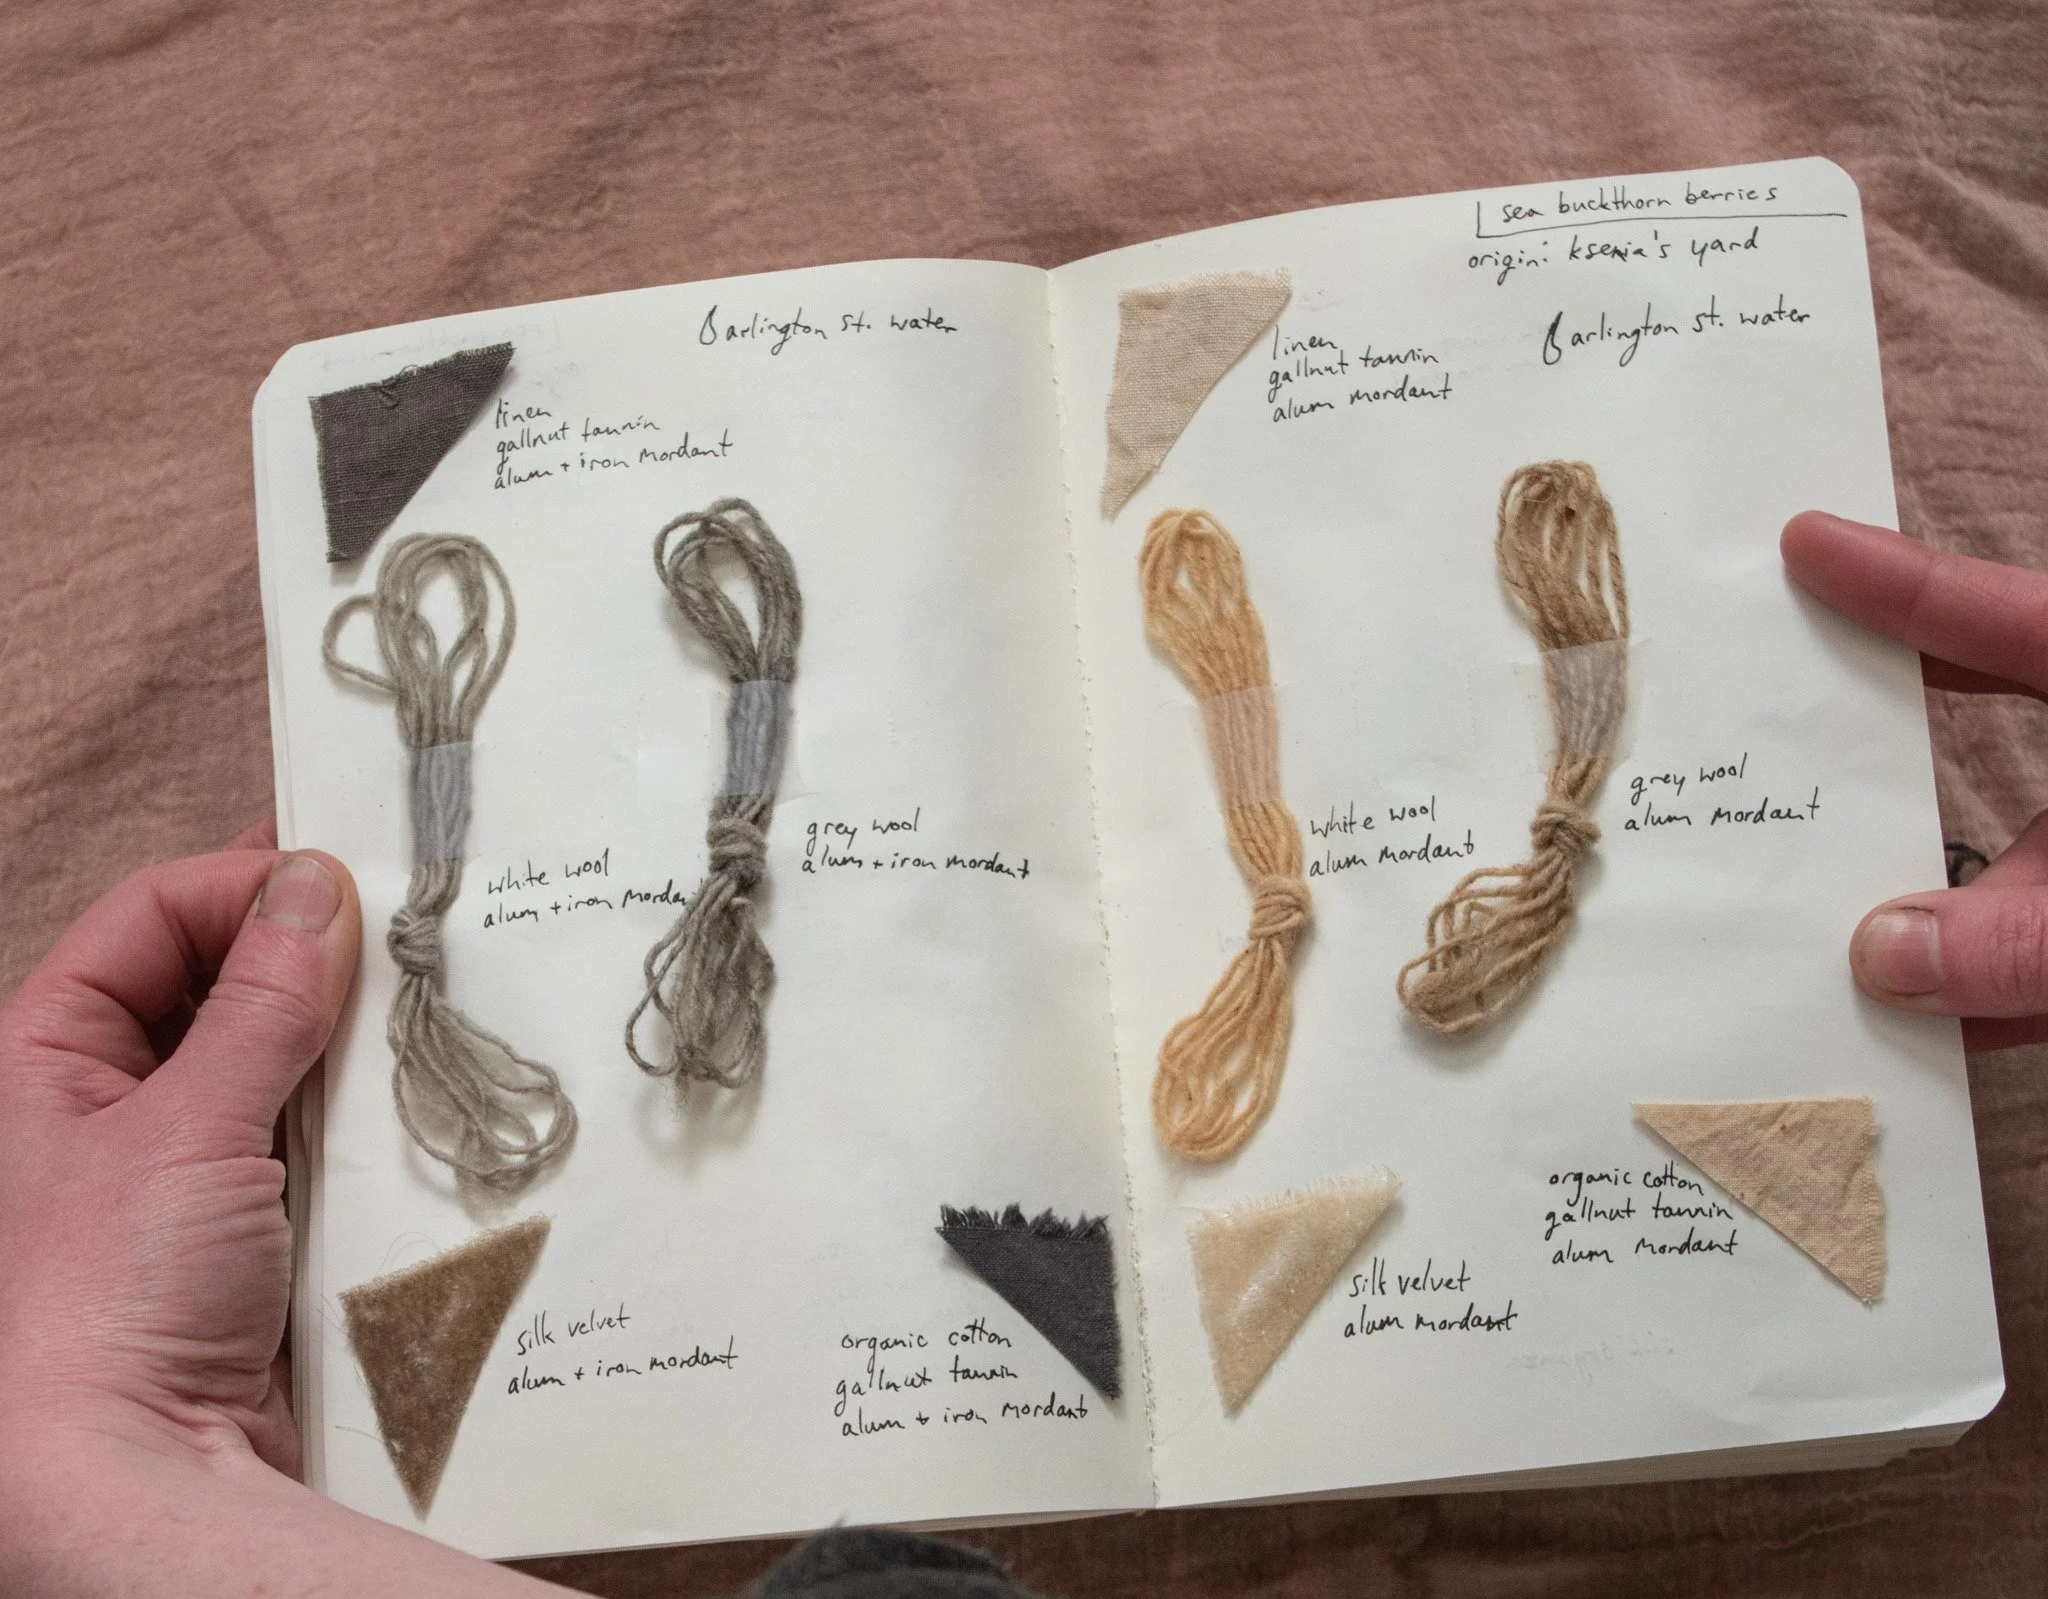 arlington st. water
linen
gallnut tannin
alum + iron mordant
white wool
alum + iron mordan
grey wool
alum + iron mordant
silk velvet
alum + iron mordant
organic cotton
gallnut tannin
alum + iron mordant
sea buckthorn berries
origin: ksenia's yard
arlington st. water
linen
gallnut tannin
alum mordant
white wool
alum mordant
grey wool
alum mordant
silk velvet
alum mordant
organic cotton
gallnut tannin
alum mordant